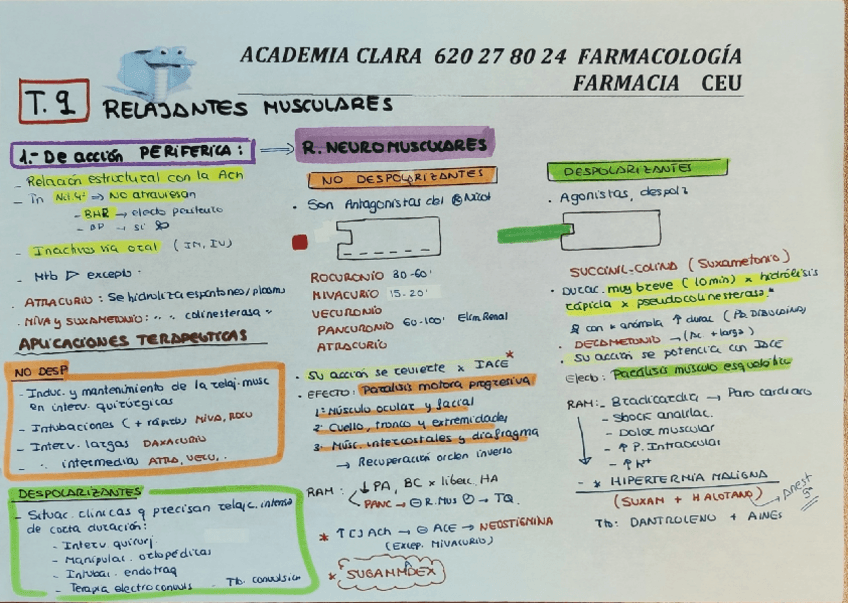 ACADEMIA CLARA 620 27 80 24 FARMACOLOGÍA
FARMACIA CEU
T. 9 RELAJANTES MUSCULARES
1.- De acción PERIFERICA:
- Relación estructural con la Ach
⇒ No atraviesan
- BHE → efecto periférico
- BP → sí
- Inactivos vía oral (IM, IV)
excepto:
. ATRACURIO: Se hidroliza espontaneo/plasma
. MIVA y SUXAMETONIO: " " colinesterasa "
APLICACIONES TERAPEUTICAS
NO DESP
- Induc. y mantenimiento de la relaj. musc
en interv. quirúrgicas
- Intubaciones (+ rápidos) MIVA, ROCU
- Interv. largas DAXACURIO
- " intermedias ATRA, VECU, .
DESPOLARIZANTES
- Situac. clínicas q precisan relajc. intensa
de corta duración:
- Interv quirurj.
- Manipulac. ortopédicas
- Intubac. endotraq
- Terapia electroconvuls - Tto. convulsión
R. NEUROMUSCULARES
NO DESPOLARIZANTES
. Son Antagonistas del
ROCURONIO 30-60'
MIVACURIO 15-20'
VECURONIO
PANCURONIO 60-100' Elim Renal
ATRACURIO
. Su acción se revierte x IACE*
. EFECTO: Paralisis motora progresiva
1º Músculo ocular y facial
2º Cuello, tronco y extremidades
3º Músc. intercostales y diafragma
→ Recuperación orden inverso
RAM: ↓ PA, BC x liberc. HA
PANC → ⊖ R. Mus → TQ.
* ↑ [ ] Ach → ⊖ ACE → NEOSTIGMINA
(EXCEP. MIVACURIO)
* SUGAMMDEX
DESPOLARIZANTES
. Agonistas, despolz
SUCCINIL-COLINA (Suxametonio)
. Durac. muy breve (10 min) x hidrólisis
rápida x pseudocolinesterasa.*
con * anómala ↑ durac (Pa. DIBUCAINA)
. DECAMETONIO → (Ac + larga)
. Su acción se potencia con IACE
Efecto: Parálisis músculo esquelético
RAM: - Bradicardia → Paro cardiaco
- Shock anafilac.
- Dolor muscular
- ↑ P. Intraocular
- ↑ K+
- * HIPERTERMIA MALIGNA
(SUXAM + HALOTANO) → Anest
Tto: DANTROLENO + AINES